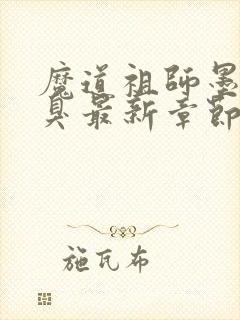 魔道祖師墨
臭最新章節
施瓦布